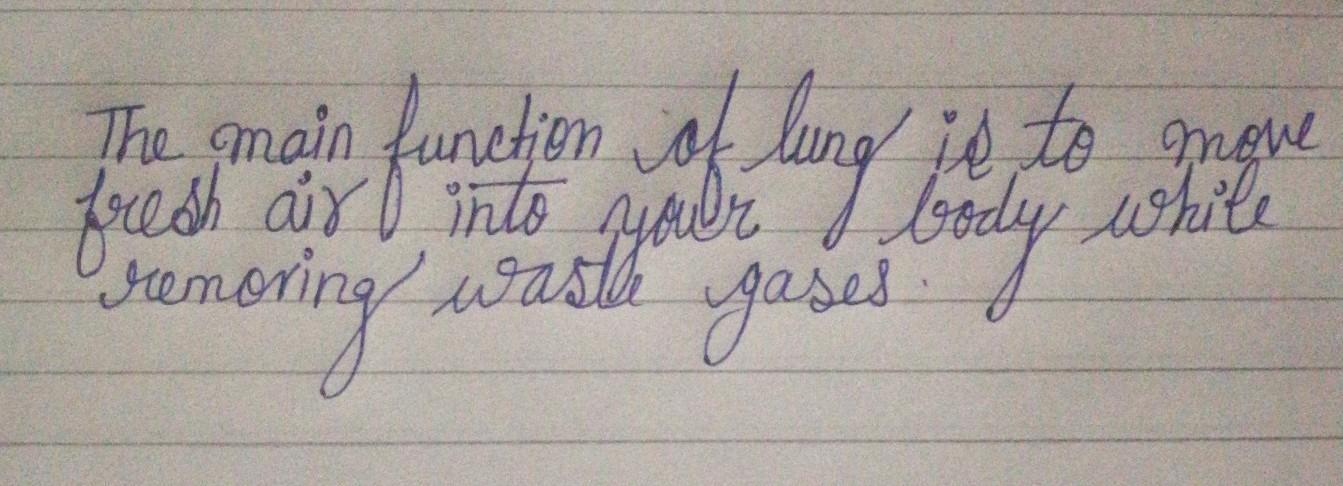 The main function of lung is to move
fresh air into your body while
removing waste gases.